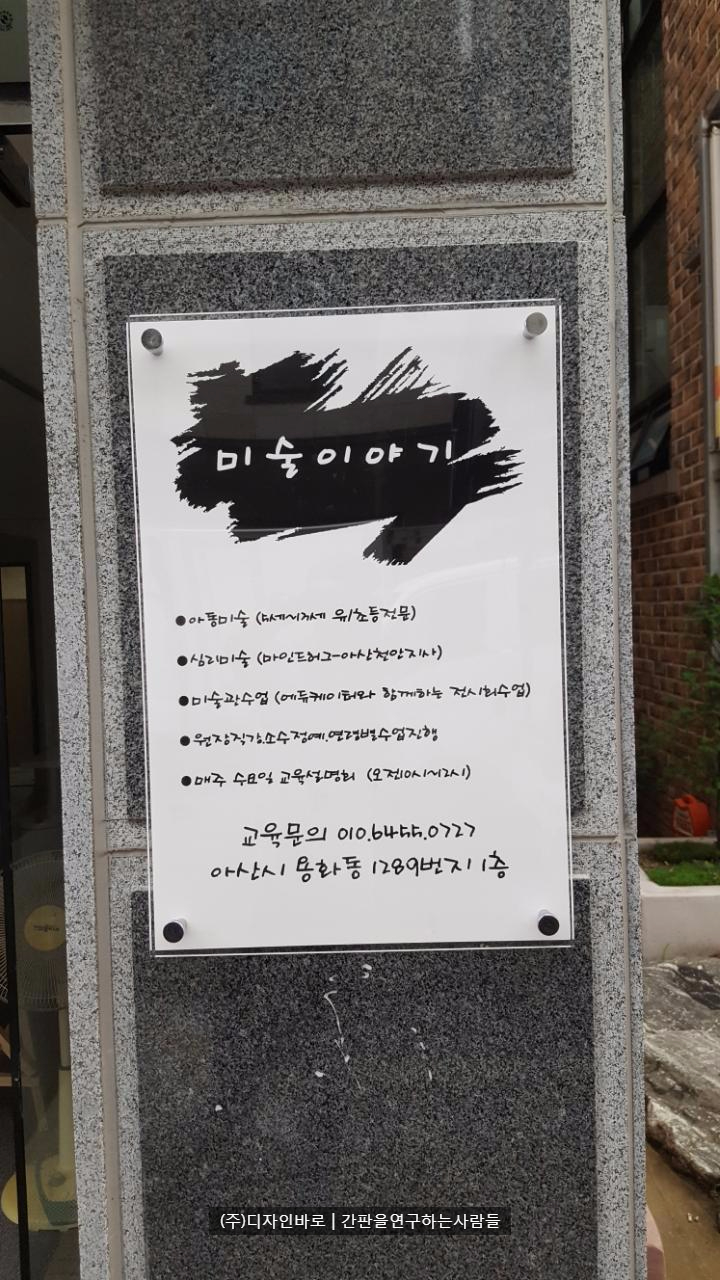 미술이야기
●아동미술 (5세~13세 유/초등전문)
●심리미술 (마인드허그-아산천안지사)
●미술관수업 (에듀케이터와 함께하는 전시회수업)
●원장직강.소수정예.연령별수업진행
●매주 수요일 교육설명회 (오전10시~12시)
교육문의 010.6455.0727
아산시 용화동 1289번지 1층
(주)디자인바로 | 간판을연구하는사람들